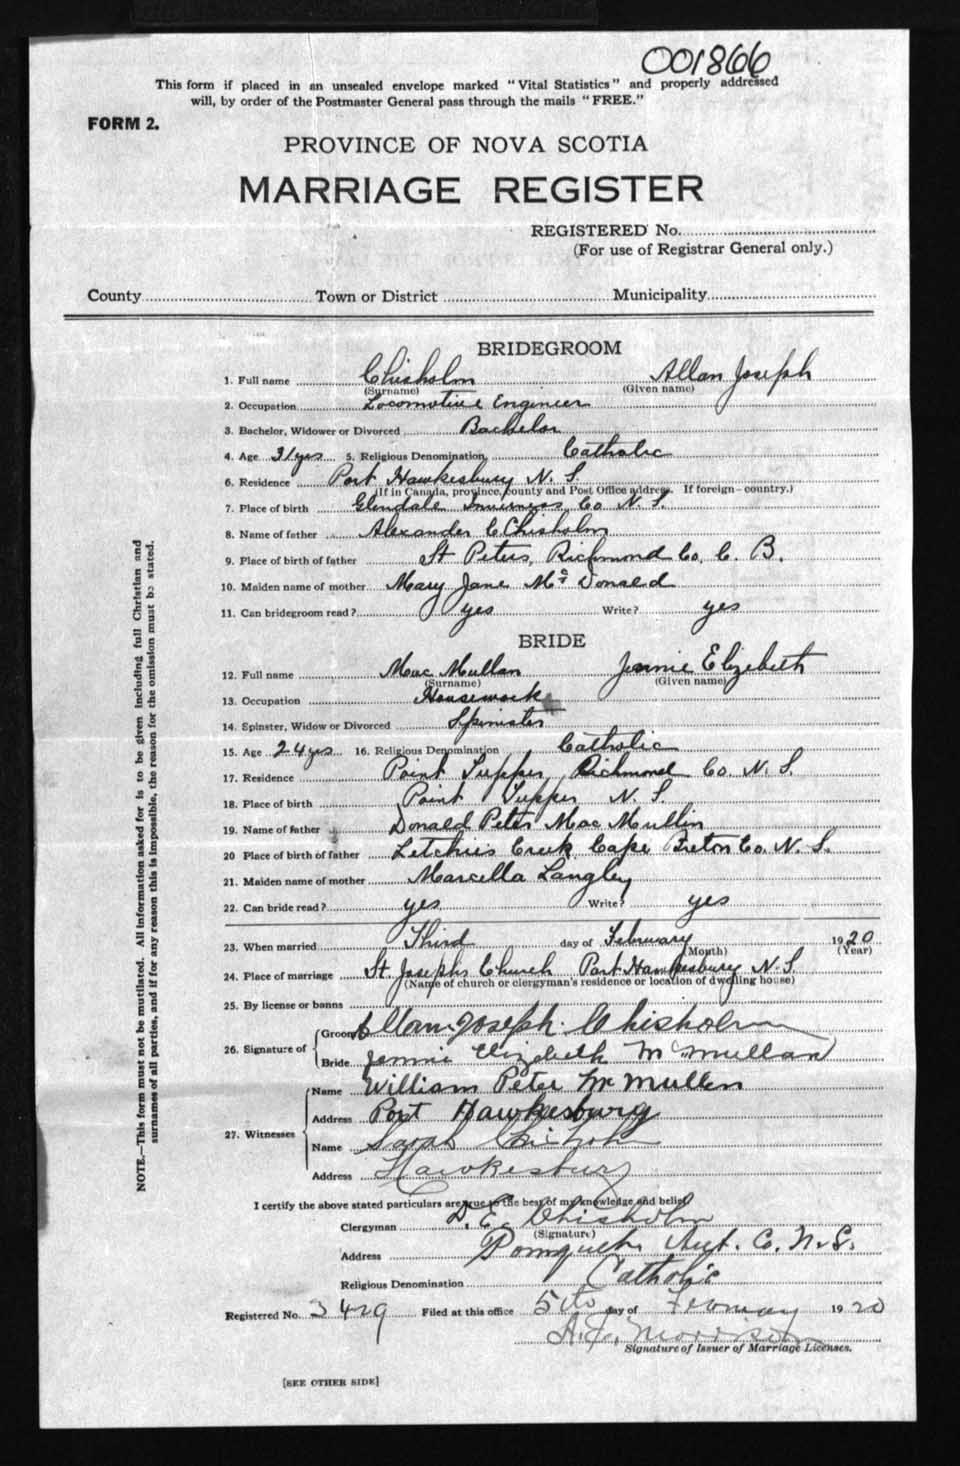 001866
This form if placed in an unsealed envelope marked "Vital Statistics" and properly addressed
will, by order of the Postmaster General pass through the mails "FREE."
FORM 2.
PROVINCE OF NOVA SCOTIA
MARRIAGE REGISTER
REGISTERED No.
(For use of Registrar General only.)
County Town or District Municipality
BRIDEGROOM
1. Full name Chisholm Allan Joseph
(Surname) (Given name)
2. Occupation Locomotive Engineer
3. Bachelor, Widower or Divorced Bachelor
4. Age 31 yrs 5. Religious Denomination Catholic
6. Residence Port Hawkesbury N. S.
(If in Canada, province, county and Post Office address. If foreign—country.)
7. Place of birth Glendale Inverness Co N. S.
8. Name of father Alexander C. Chisholm
9. Place of birth of father St Peters, Richmond Co, C. B.
10. Maiden name of mother Mary Jane Mc Donald
11. Can bridegroom read? yes Write? yes
BRIDE
12. Full name Mac Mullan Jennie Elizebeth
(Surname) (Given name)
13. Occupation Housework
14. Spinster, Widow or Divorced Spinister
15. Age 24 yrs 16. Religious Denomination Catholic
17. Residence Point Tupper, Richmond Co. N. S.
18. Place of birth Point Tupper N. S.
19. Name of father Donald Peter Mac Mullin
20 Place of birth of father Letchies Creek, Cape Breton Co. N. S.
21. Maiden name of mother Marcella Langley
22. Can bride read? yes Write? yes
23. When married Third day of February 1920
(Month) (Year)
24. Place of marriage St. Joseph's Church Port Hawkesbury N. S.
(Name of church or clergyman's residence or location of dwelling house)
25. By license or banns
26. Signature of Groom Allan Joseph Chisholm
Bride Jennie Elizebeth McMullan
27. Witnesses Name William Peter McMullen
Address Port Hawkesburg
Name Sarah Chisholm
Address Hawkesbury
I certify the above stated particulars are true to the best of my knowledge and belief.
Clergyman D. E. Chisholm
(Signature)
Address Pomquet, Ant. Co. N. S.
Religious Denomination Catholic
Registered No. 3429 Filed at this office 5th day of February 1920
Morrison
Signature of Issuer of Marriage Licenses.
[SEE OTHER SIDE]
NOTE.—This form must not be mutilated. All information asked for is to be given including full Christian and
surnames of all parties, and if for any reason this is impossible, the reason for the omission must be stated.